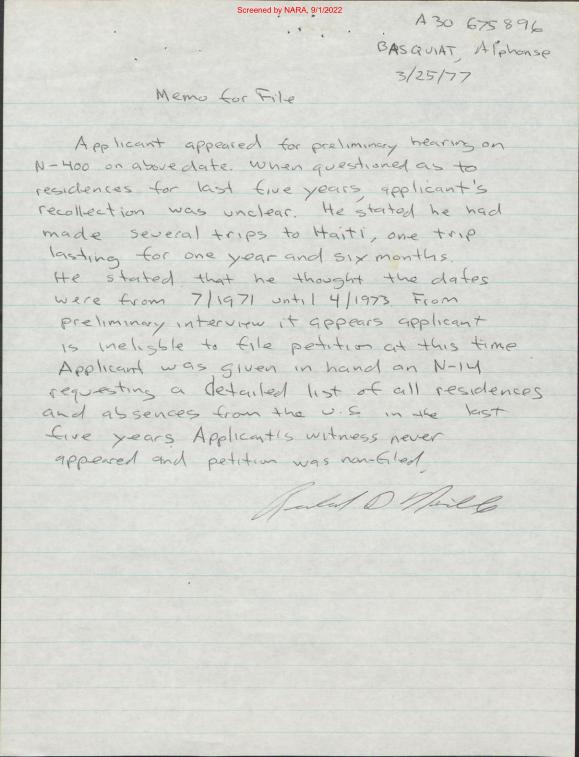 Screened by NARA, 9/1/2022
A30 675896
BASQUIAT, Alphonse
3/25/77
Memo for File
Applicant appeared for preliminary hearing on
N-400 on above date. When questioned as to
residences for last five years, applicant's
recollection was unclear. He stated he had
made several trips to Haiti, one trip
lasting for one year and six months.
He stated that he thought the dates
were from 7/1971 until 4/1973 From
preliminary interview it appears applicant
is ineligble to file petition at this time
Applicant was given in hand an N-14
requesting a detailed list of all residences
and absences from the U.S in the last
five years. Applicant's witness never
appeared and petition was non-filed.